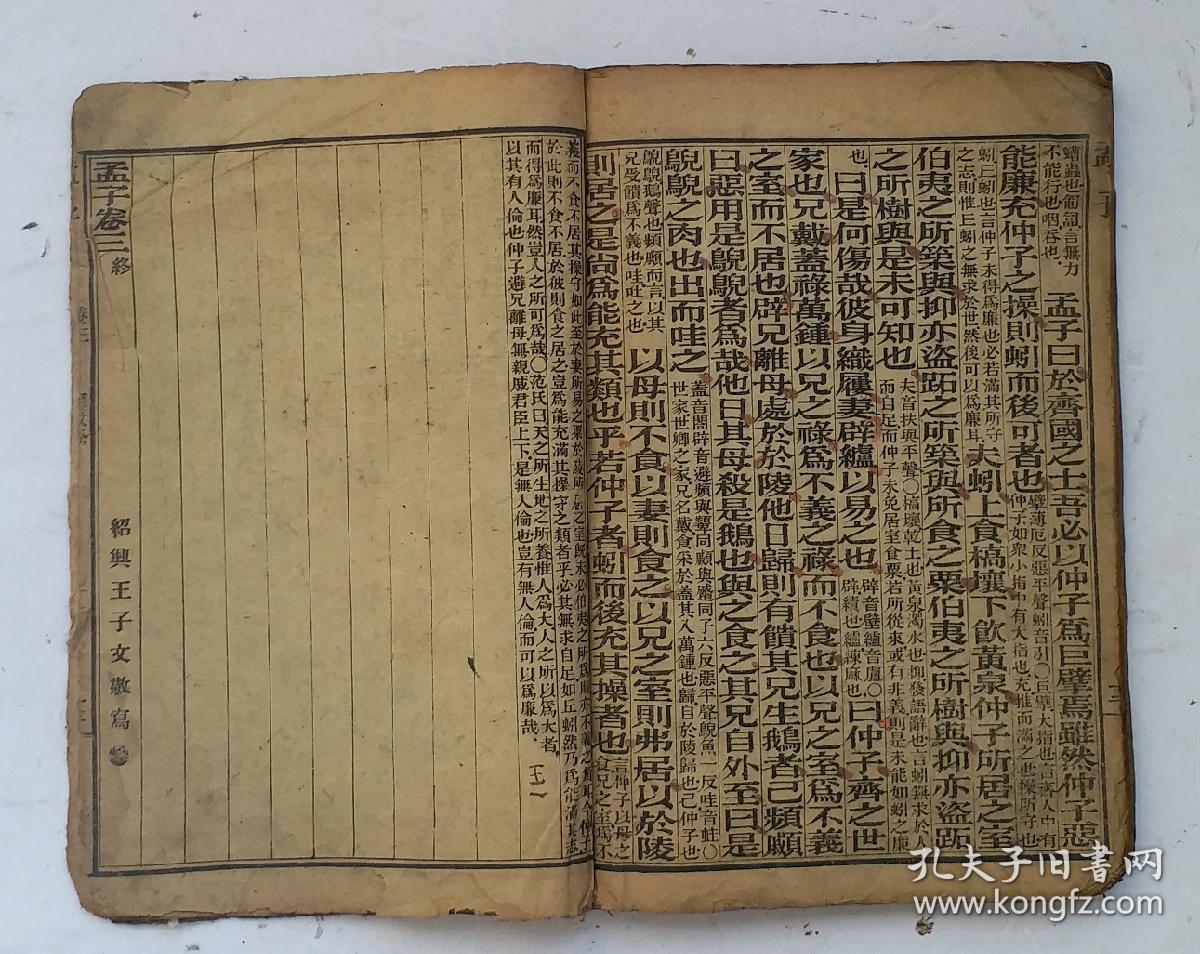 螬蟲也匍匐言無力
不能行也咽吞也
孟子曰於齊國之士吾必以仲子爲巨擘焉雖然仲子惡
能廉充仲子之操則蚓而後可者也
擘薄厄反惡平聲蚓音引○巨擘大指也言齊人中有
仲子如衆小指中有大指也充推而滿之也操所守也
蚓丘蚓也言仲子未得爲廉也必若滿其所守
之志則惟丘蚓之無求於世然後可以爲廉耳
夫蚓上食槁壤下飮黃泉仲子所居之室
伯夷之所築與抑亦盜跖之所築與所食之粟伯夷之所樹與抑亦盜跖
之所樹與是未可知也
夫音扶與平聲○槁壤乾土也黃泉濁水也抑發語辭也言蚓無求於人
而自足而仲子未免居室食粟若所從來或有非義則是未能如蚓之廉
也
曰是何傷哉彼身織屨妻辟纑以易之也
辟音壁纑音盧○
辟績也纑練麻也
曰仲子齊之世
家也兄戴蓋祿萬鍾以兄之祿爲不義之祿而不食也以兄之室爲不義
之室而不居也辟兄離母處於於陵他日歸則有饋其兄生鵝者己頻顣
曰惡用是鶃鶃者爲哉他日其母殺是鵝也與之食之其兄自外至曰是
鶃鶃之肉也出而哇之
蓋音閤辟音避頻與顰同顣與蹙同子六反惡平聲鶃魚一反哇音蛙○
世家世卿之家兄名戴食采於蓋其入萬鍾也歸自於陵歸也己仲子也
鶃鶃鵝聲也頻顣而言以其
兄受饋爲不義也哇吐之也
以母則不食以妻則食之以兄之室則弗居以於陵
則居之是尚爲能充其類也乎若仲子者蚓而後充其操者也
言仲子以母之
食兄之室爲不
義而不食不居其操守如此至於妻所易之粟於陵所居之室旣未必伯夷之所爲則亦不義之類耳今仲子
於此則不食不居於彼則食之居之豈爲能充滿其操守之類者乎必其無求自足如丘蚓然乃爲能滿其志
而得爲廉耳然豈人之所可爲哉○范氏曰天之所生地之所養惟人爲大人之所以爲大者
以其有人倫也仲子避兄離母無親戚君臣上下是無人倫也豈有無人倫而可以爲廉哉
孟子卷三終
紹興王子女敬寫
孔夫子旧书网
www.kongfz.com